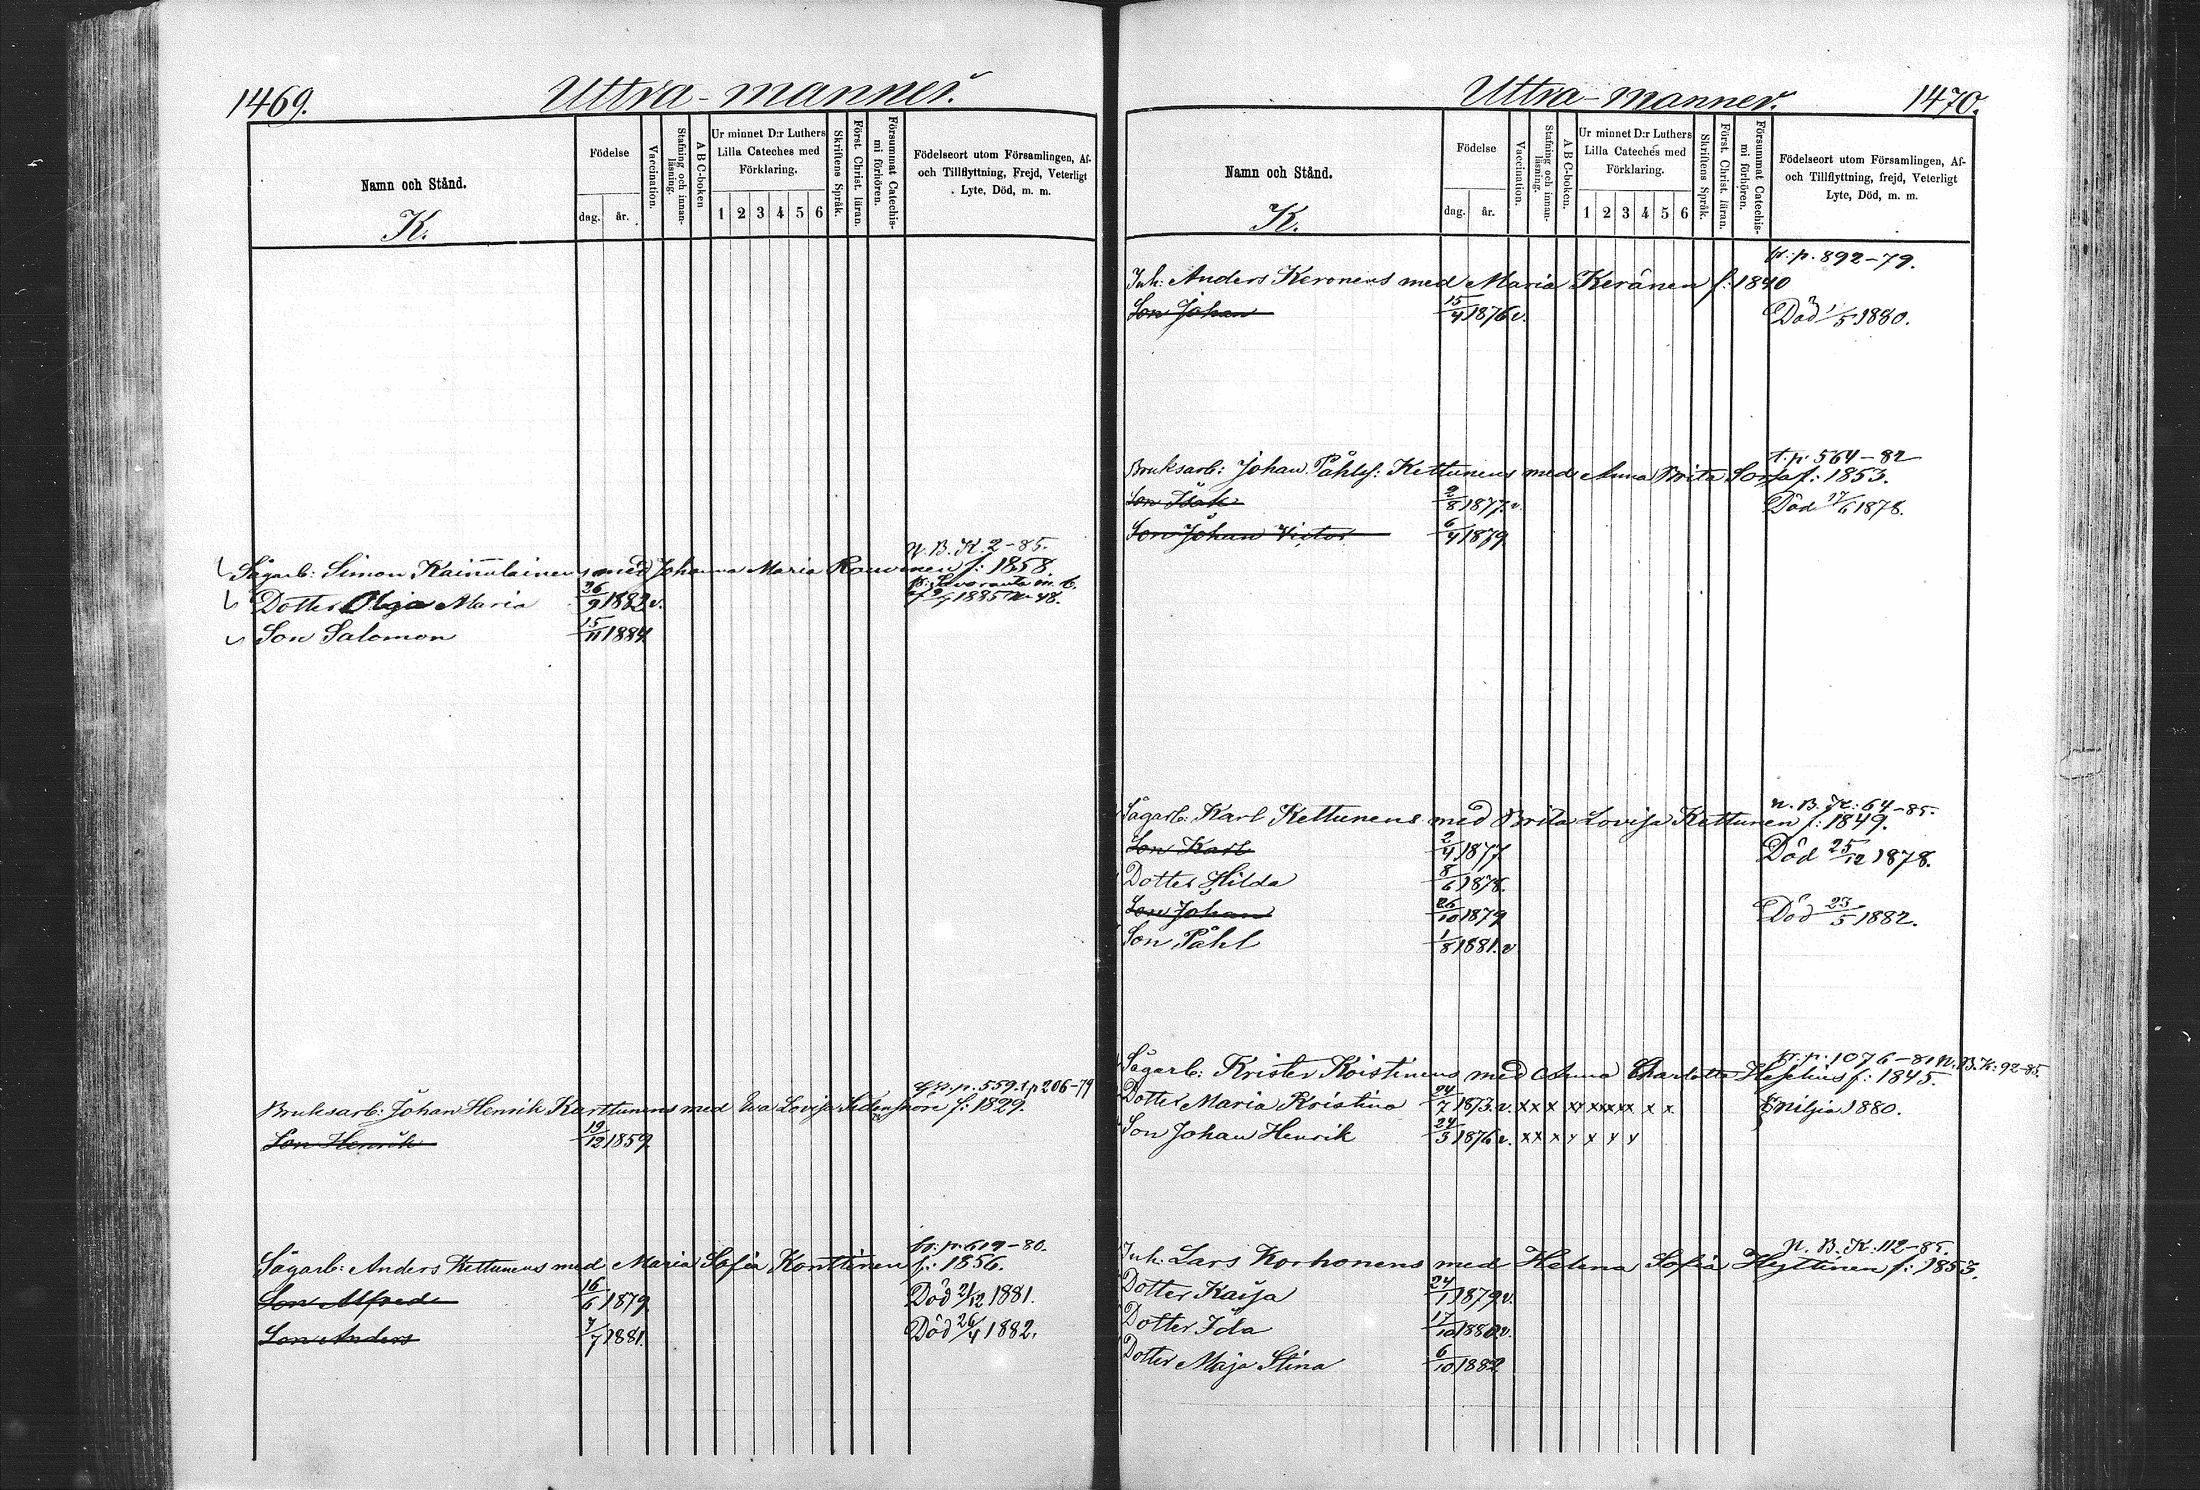 1469.
Uttra-manner.
Namn och Stånd.
K.
Födelse
dag. år.
Vaccination.
Stafning och innan-läsning.
A B C-boken
Ur minnet D:r Luthers Lilla Cateches med Förklaring.
1 2 3 4 5 6
Skriftens Språk.
Först. Christ. läran.
Försummat Catechis-mi förhören.
Födelseort utom Församlingen, Af- och Tillflyttning, Frejd, Veterligt Lyte, Död, m. m.
n. B. K. 2-85.
Sågarb: Simon Kainulainens med Johanna Maria Rouvinen f: 1858.
Dotter Olga Maria 26/9 1882 v. 1885 N 48.
Son Salomon 15/11 1884
p. 559. t. p 206-79
Bruksarb: Johan Henrik Karttunens med Eva Lovisa f: 1829.
Son Henrik 19/12 1859
fr: p. 619-80.
Sågarb: Anders Kettunens med Maria Sofia Konttinen f: 1856.
Son Alfred 16/6 1879 Död 21/12 1881.
Son Anders 7/7 1881. Död 26/4 1882.
Uttra-manner.
1470.
Namn och Stånd.
K.
Födelse
dag. år.
Vaccination.
Stafning och innan-läsning.
A B C-boken.
Ur minnet D:r Luthers Lilla Cateches med Förklaring.
1 2 3 4 5 6
Skriftens Språk.
Först. Christ. läran.
Försummat Catechis-mi förhören.
Födelseort utom Församlingen, Af- och Tillflyttning, frejd, Veterligt Lyte, Död, m. m.
fr: p. 892-79.
Inh: Anders Keronens med Maria Keränen f: 1840
Son Johan 15/4 1876 v. Död 1/5 1880.
t. p. 564-82
Bruksarb: Johan Påhlsf: Kettunens med Anna Brita Sorsa f: 1853.
Son Isak 2/8 1877. v. Död 17/6 1878.
Son Johan Victor 6/4 1879
n. B. K: 64-85.
Sågarb: Karl Kettunens med Brita Lovisa Kettunen f: 1849.
Son Karl 2/4 1877 Död 25/12 1878.
Dotter Hilda 8/6 1878.
Son Johan 26/10 1879 Död 23/5 1882.
Son Påhl 1/8 1881. v
fr: p: 1076-81 n. B. K: 92-85.
Sågarb: Krister Koistinens med Anna Charlotta Heselius f: 1845.
Dotter Maria Kristina 24/7 1873. v. x x x x x x x x x x x 1880.
Son Johan Henrik 24/5 1876 v. x x x x x x x
n. B. K. 112-85.
Inh: Lars Korhonens med Helena Sofia Hyttinen f: 1853.
Dotter Kaisa 24/1 1879 v.
Dotter Ida 17/10 1880 v.
Dotter Maja Stina 6/10 1882